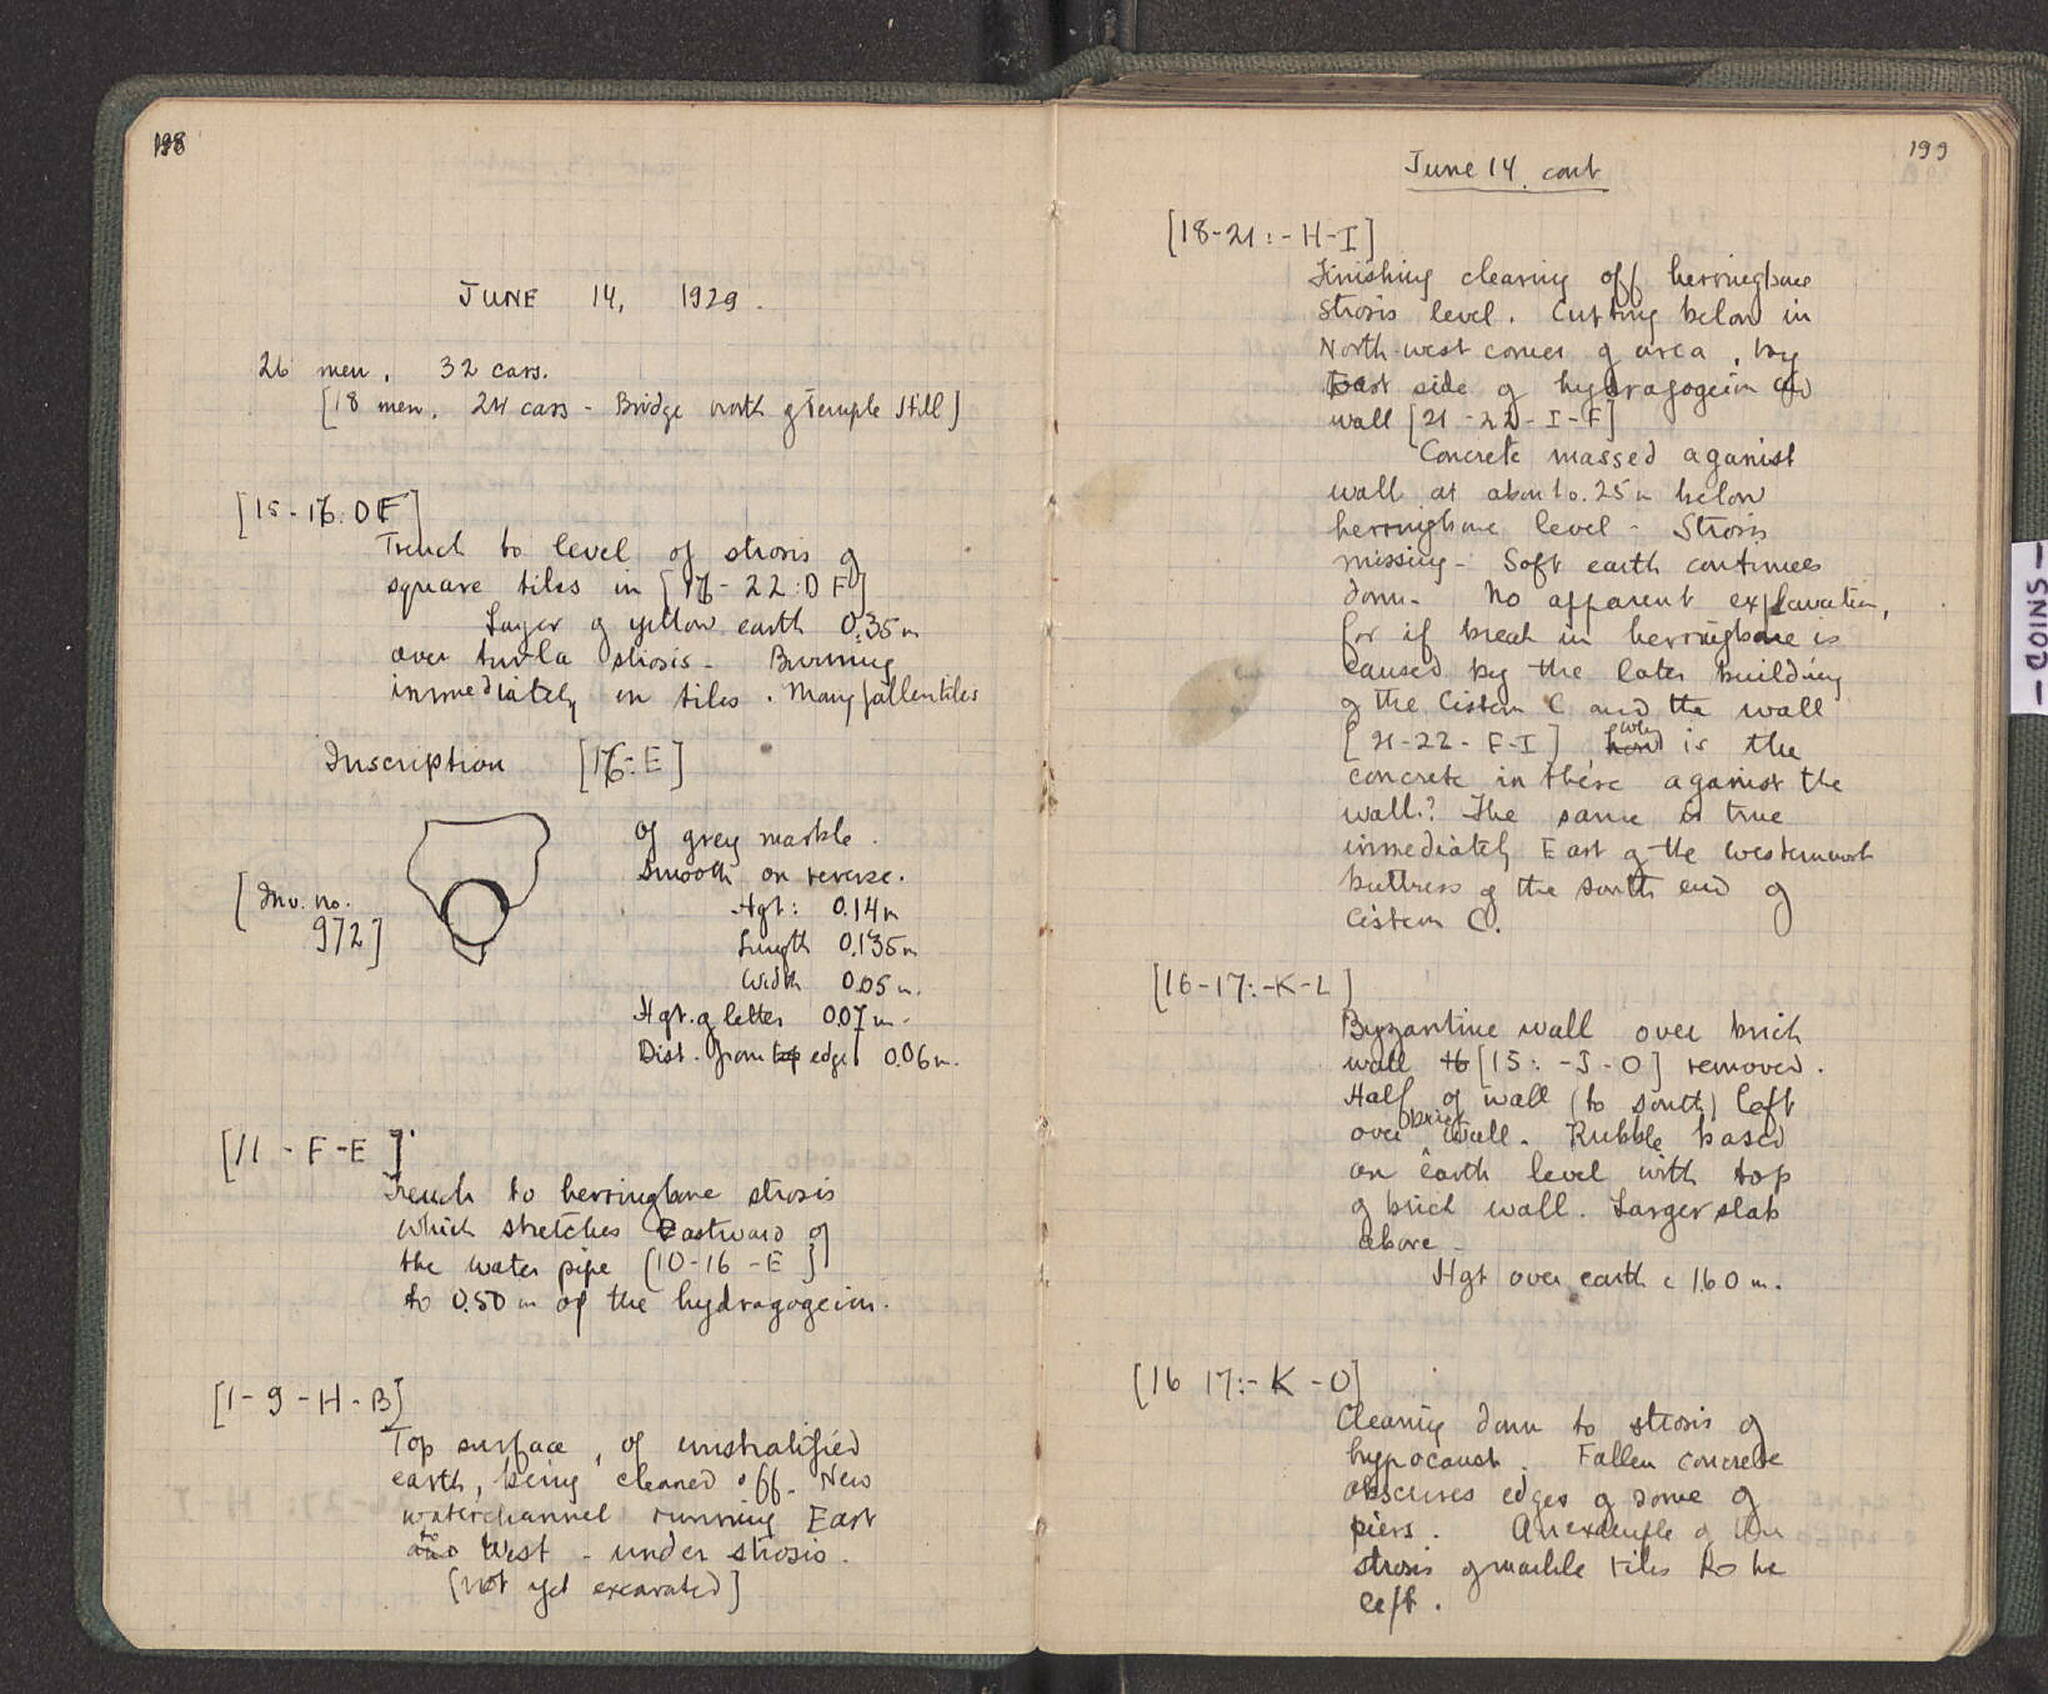 198
JUNE 14, 1929.
26 men, 32 cars.
[18 men, 24 cars - Bridge north of Temple Hill]
[15-16:DF]
Trench to level of strosis of
square tiles in [16-22:DF]
Layer of yellow earth 0.35m
over tuvla strosis - Burning
immediately on tiles. Many fallen tiles
Inscription [16:E]
Of grey marble.
Smooth on reverse.
[Inv. no.
972]
Hgt: 0.14m
Length 0.135m
Width 0.05m.
Hgt. of letter 0.07m.
Dist. from top edge 0.06m.
[11 - F-E]
Trench to herringbone strosis
which stretches Eastward of
the water pipe [10-16-E]
to 0.50m of the hydragogeion.
[1-9-H-B]
Top surface, of unstratified
earth, being cleaned off. New
waterchannel running East
and to West - under strosis.
[not yet excavated]
199
June 14. cont
[18-21:-H-I]
Finishing clearing off herringbone
strosis level. Cutting below in
North-west corner of area, by
East side of hydragogeion and
wall [21-22-I-F]
Concrete massed against
wall at about 0.25m below
herringbone level - Strosis
missing - Soft earth continues
down - No apparent explanation,
for if break in herringbone is
caused by the later building
of the Cistern C and the wall
[21-22-F-I] how why is the
concrete in there against the
wall? The same is true
immediately East of the westernmost
buttress of the south end of
Cistern C.
[16-17:-K-L]
Byzantine wall over brick
wall 16 [15:-J-O] removed.
Half of wall (to south) left
over brick wall. Rubble based
on earth level with top
of brick wall. Larger slab
above -
Hgt over earth c 1.60 m.
[16 17:-K-O]
Clearing down to strosis of
hypocaust. Fallen concrete
obscures edges of some of
piers. An example of the
strosis of marble tiles to be
left.
- COINS -